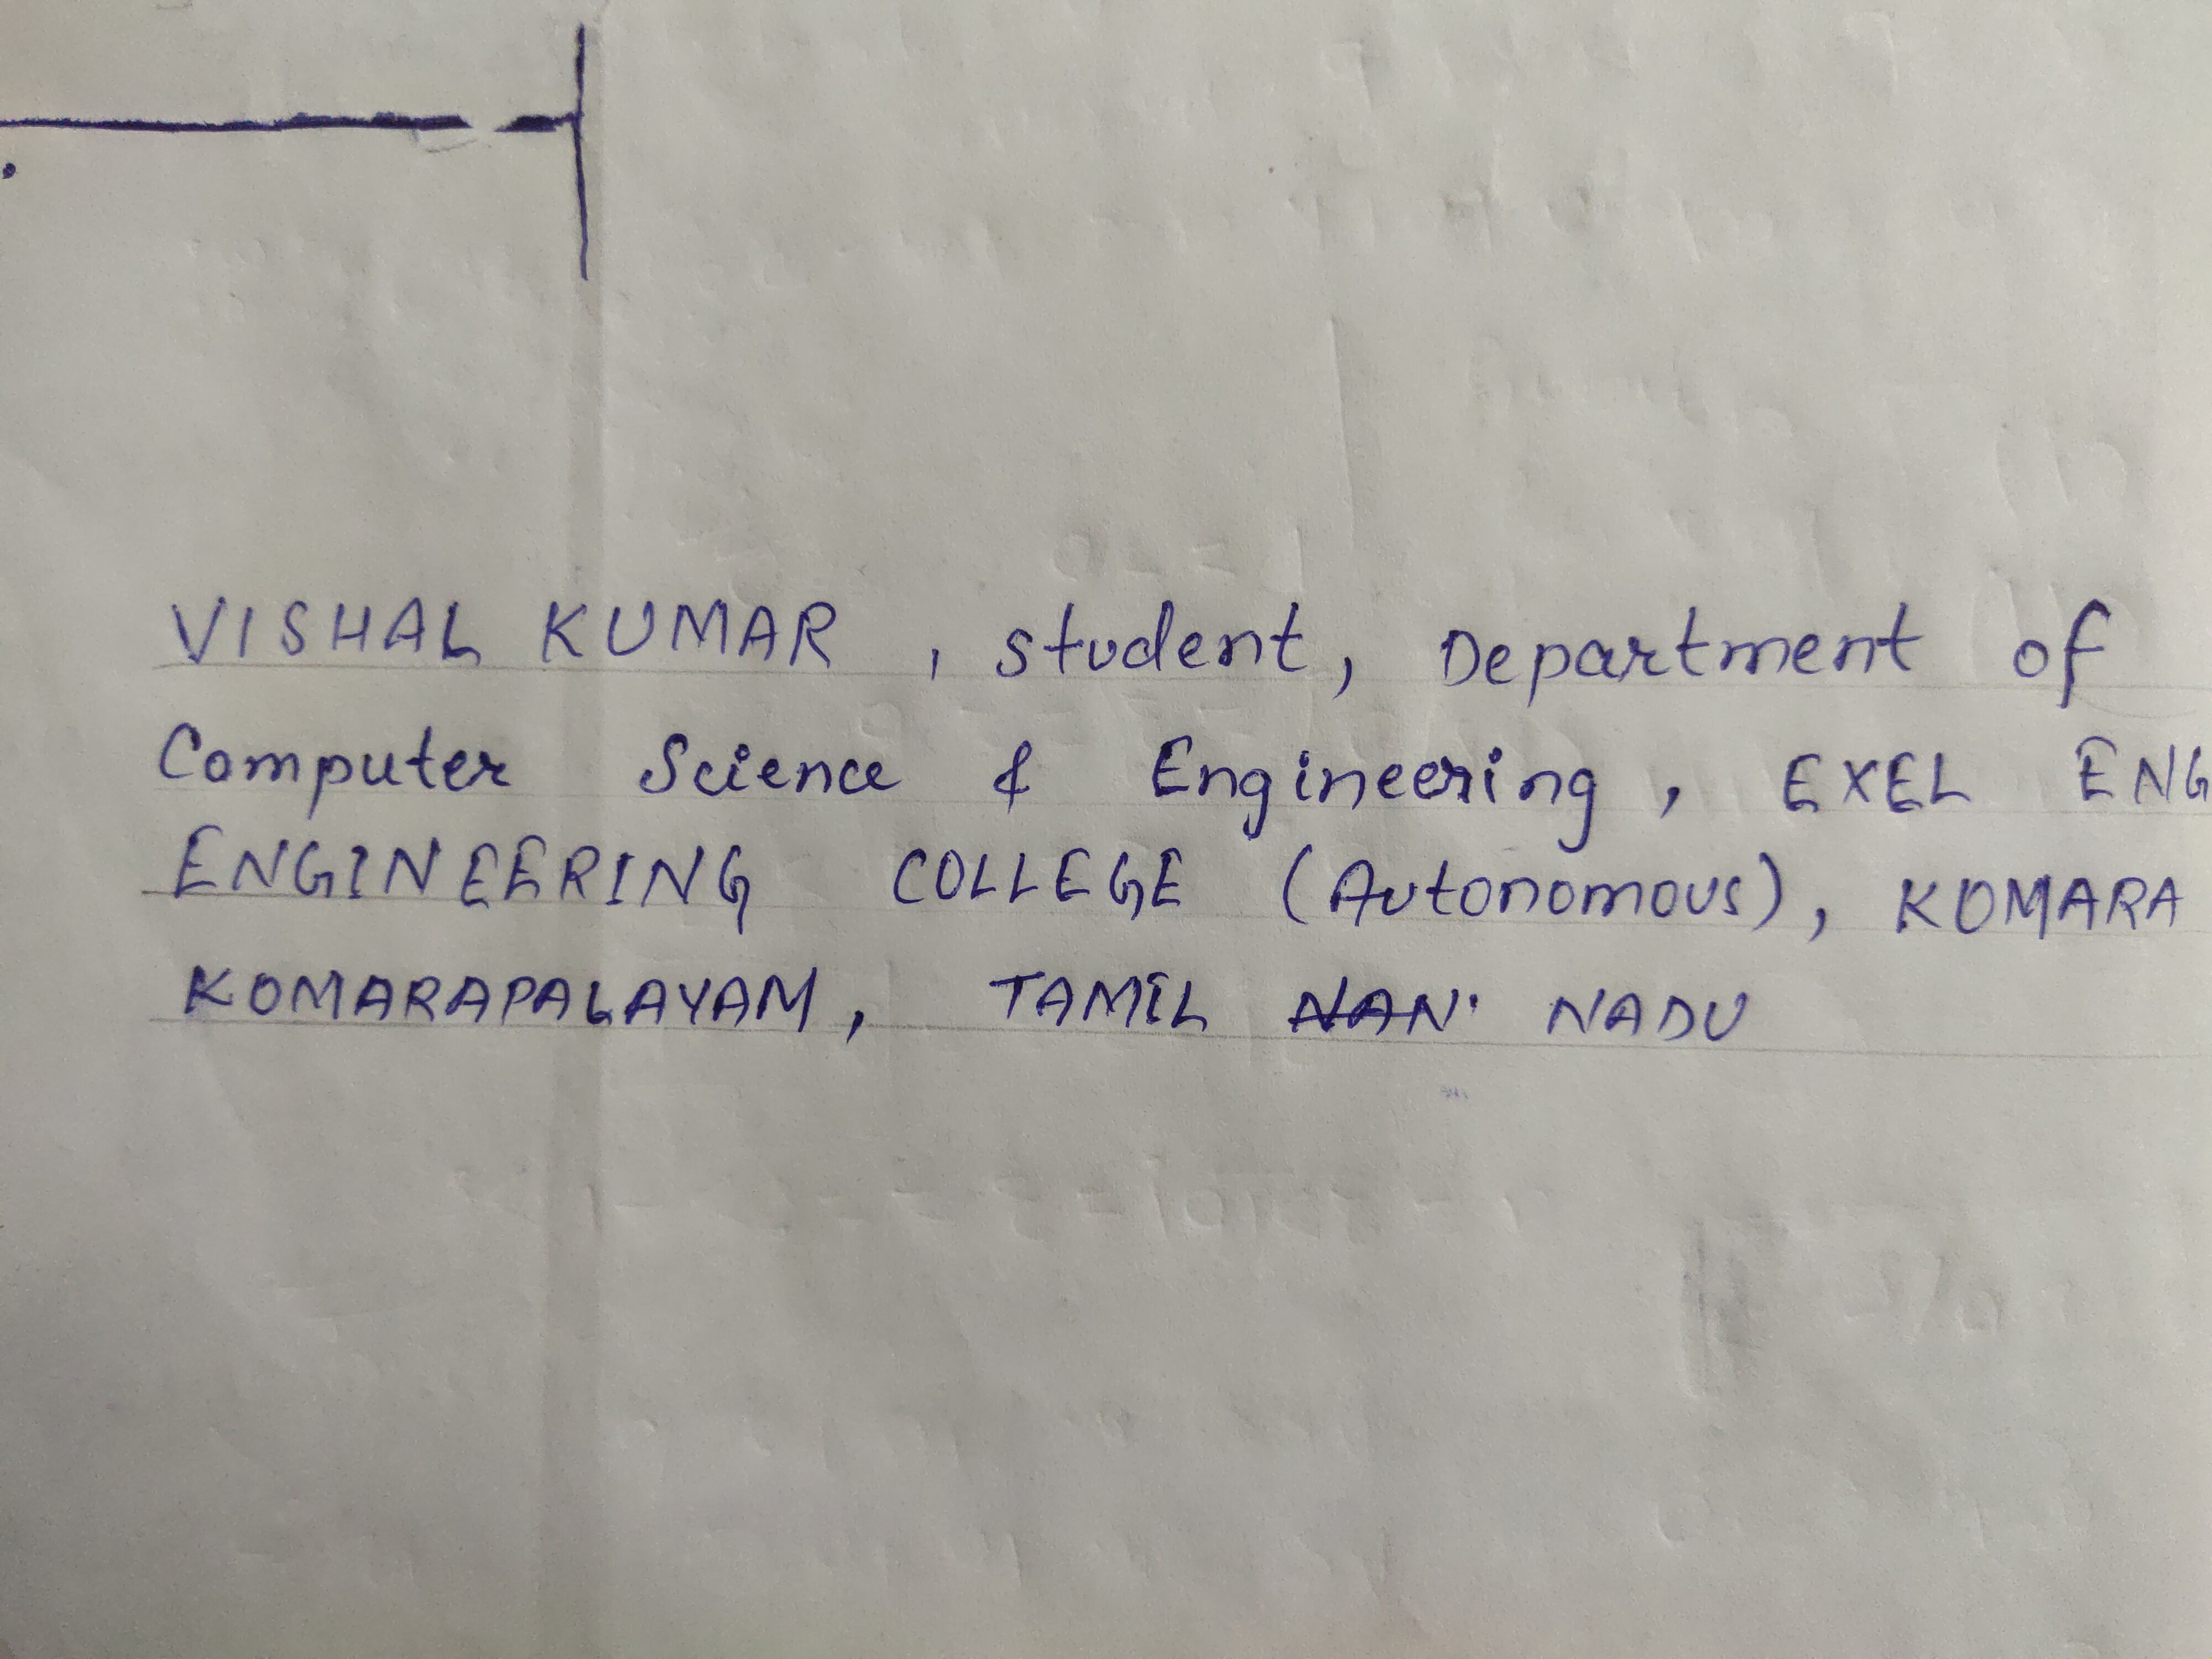 VISHAL KUMAR, Student, Department of
Computer Science & Engineering, EXEL ENG
ENGINEERING COLLEGE (Autonomous), KOMARA
KOMARAPALAYAM, TAMIL NAN NADU